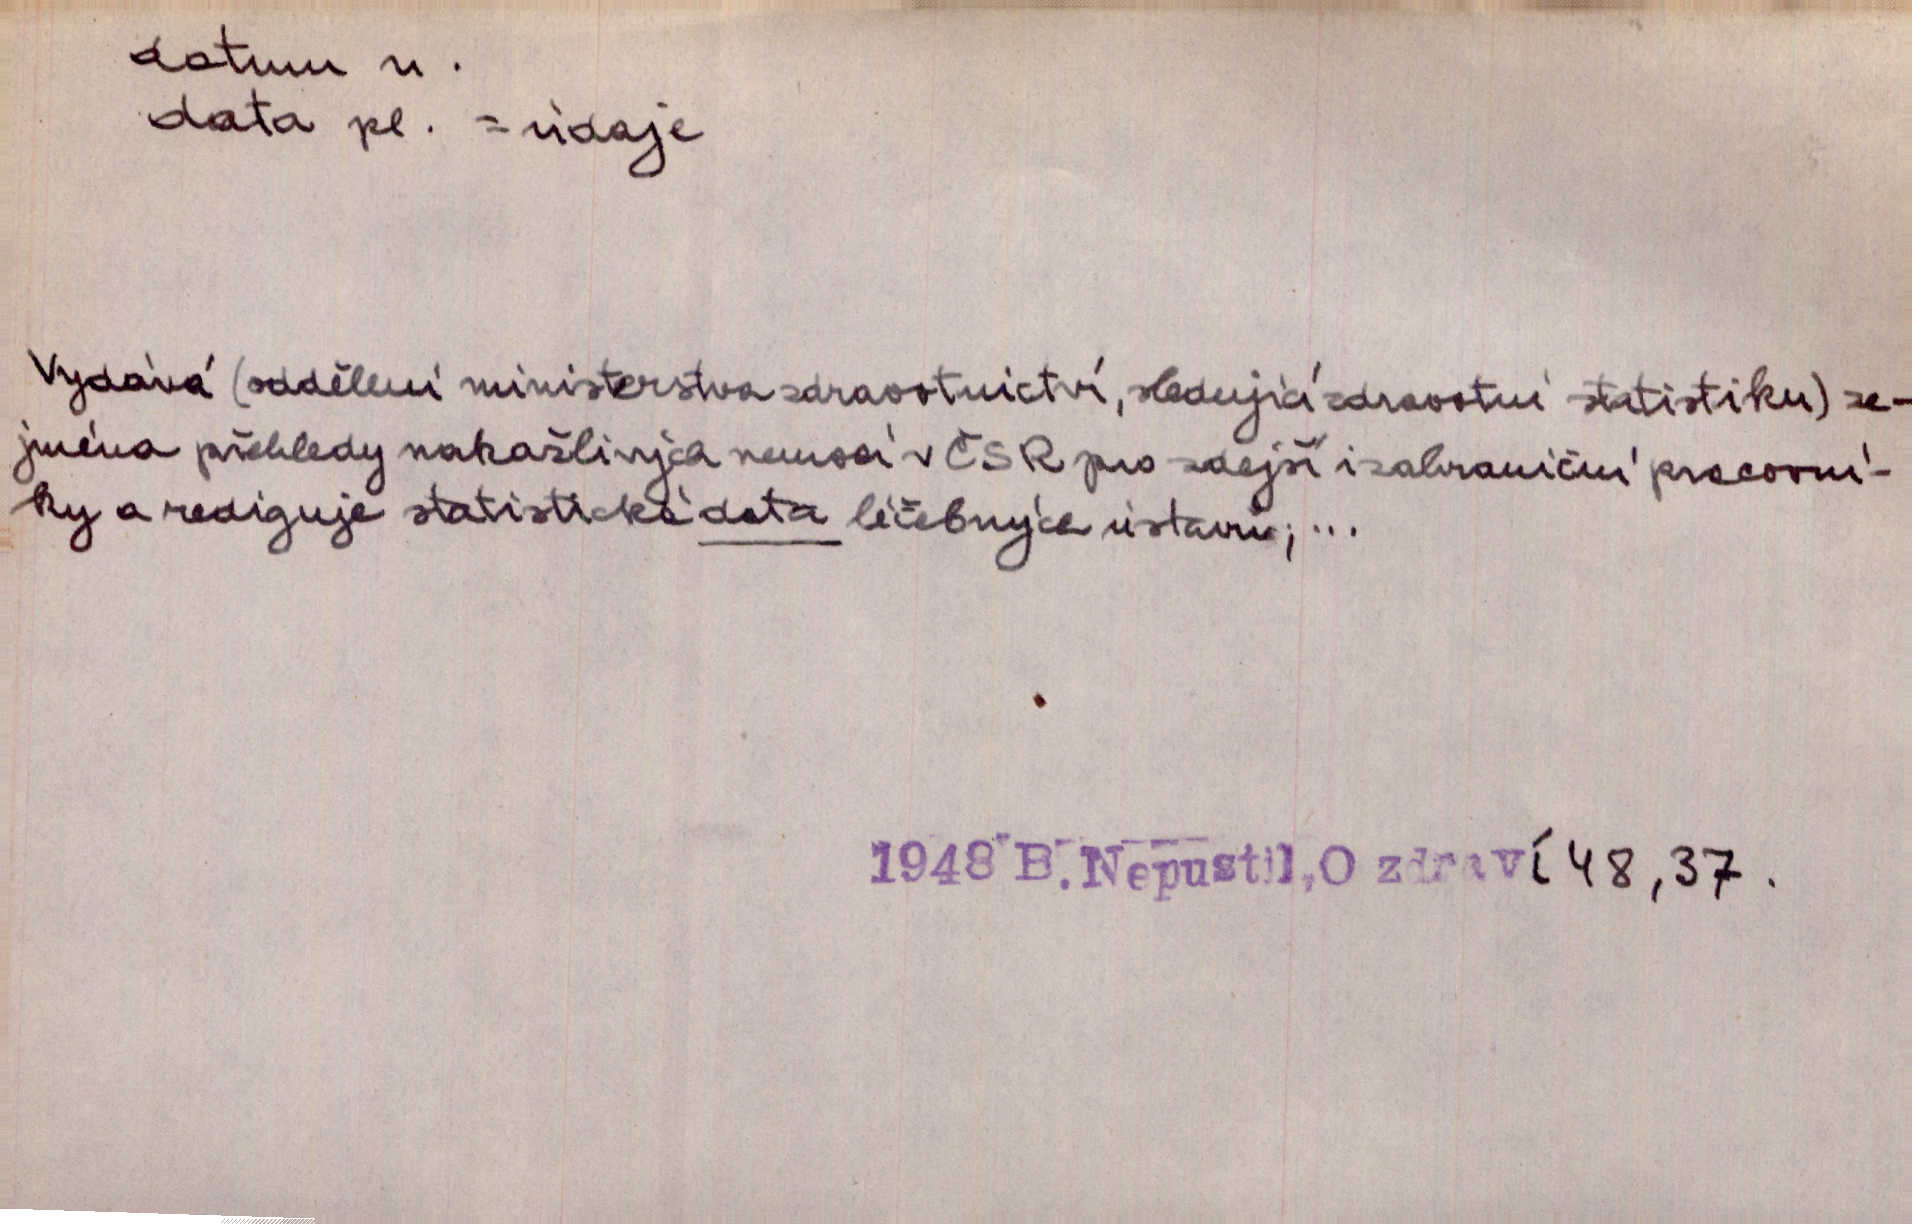 datum n.
data pl. = údaje
Vydává (oddělení ministerstva zdravotnictví, sledující zdravotní statistiku) ze-
jména přehledy nakažlivých nemocí v ČSR pro zdejší i zahraniční pracovní-
ky a rediguje statistické data léčebných ústavů; ...
1948 B. Nepustil, O zdraví 48, 37.